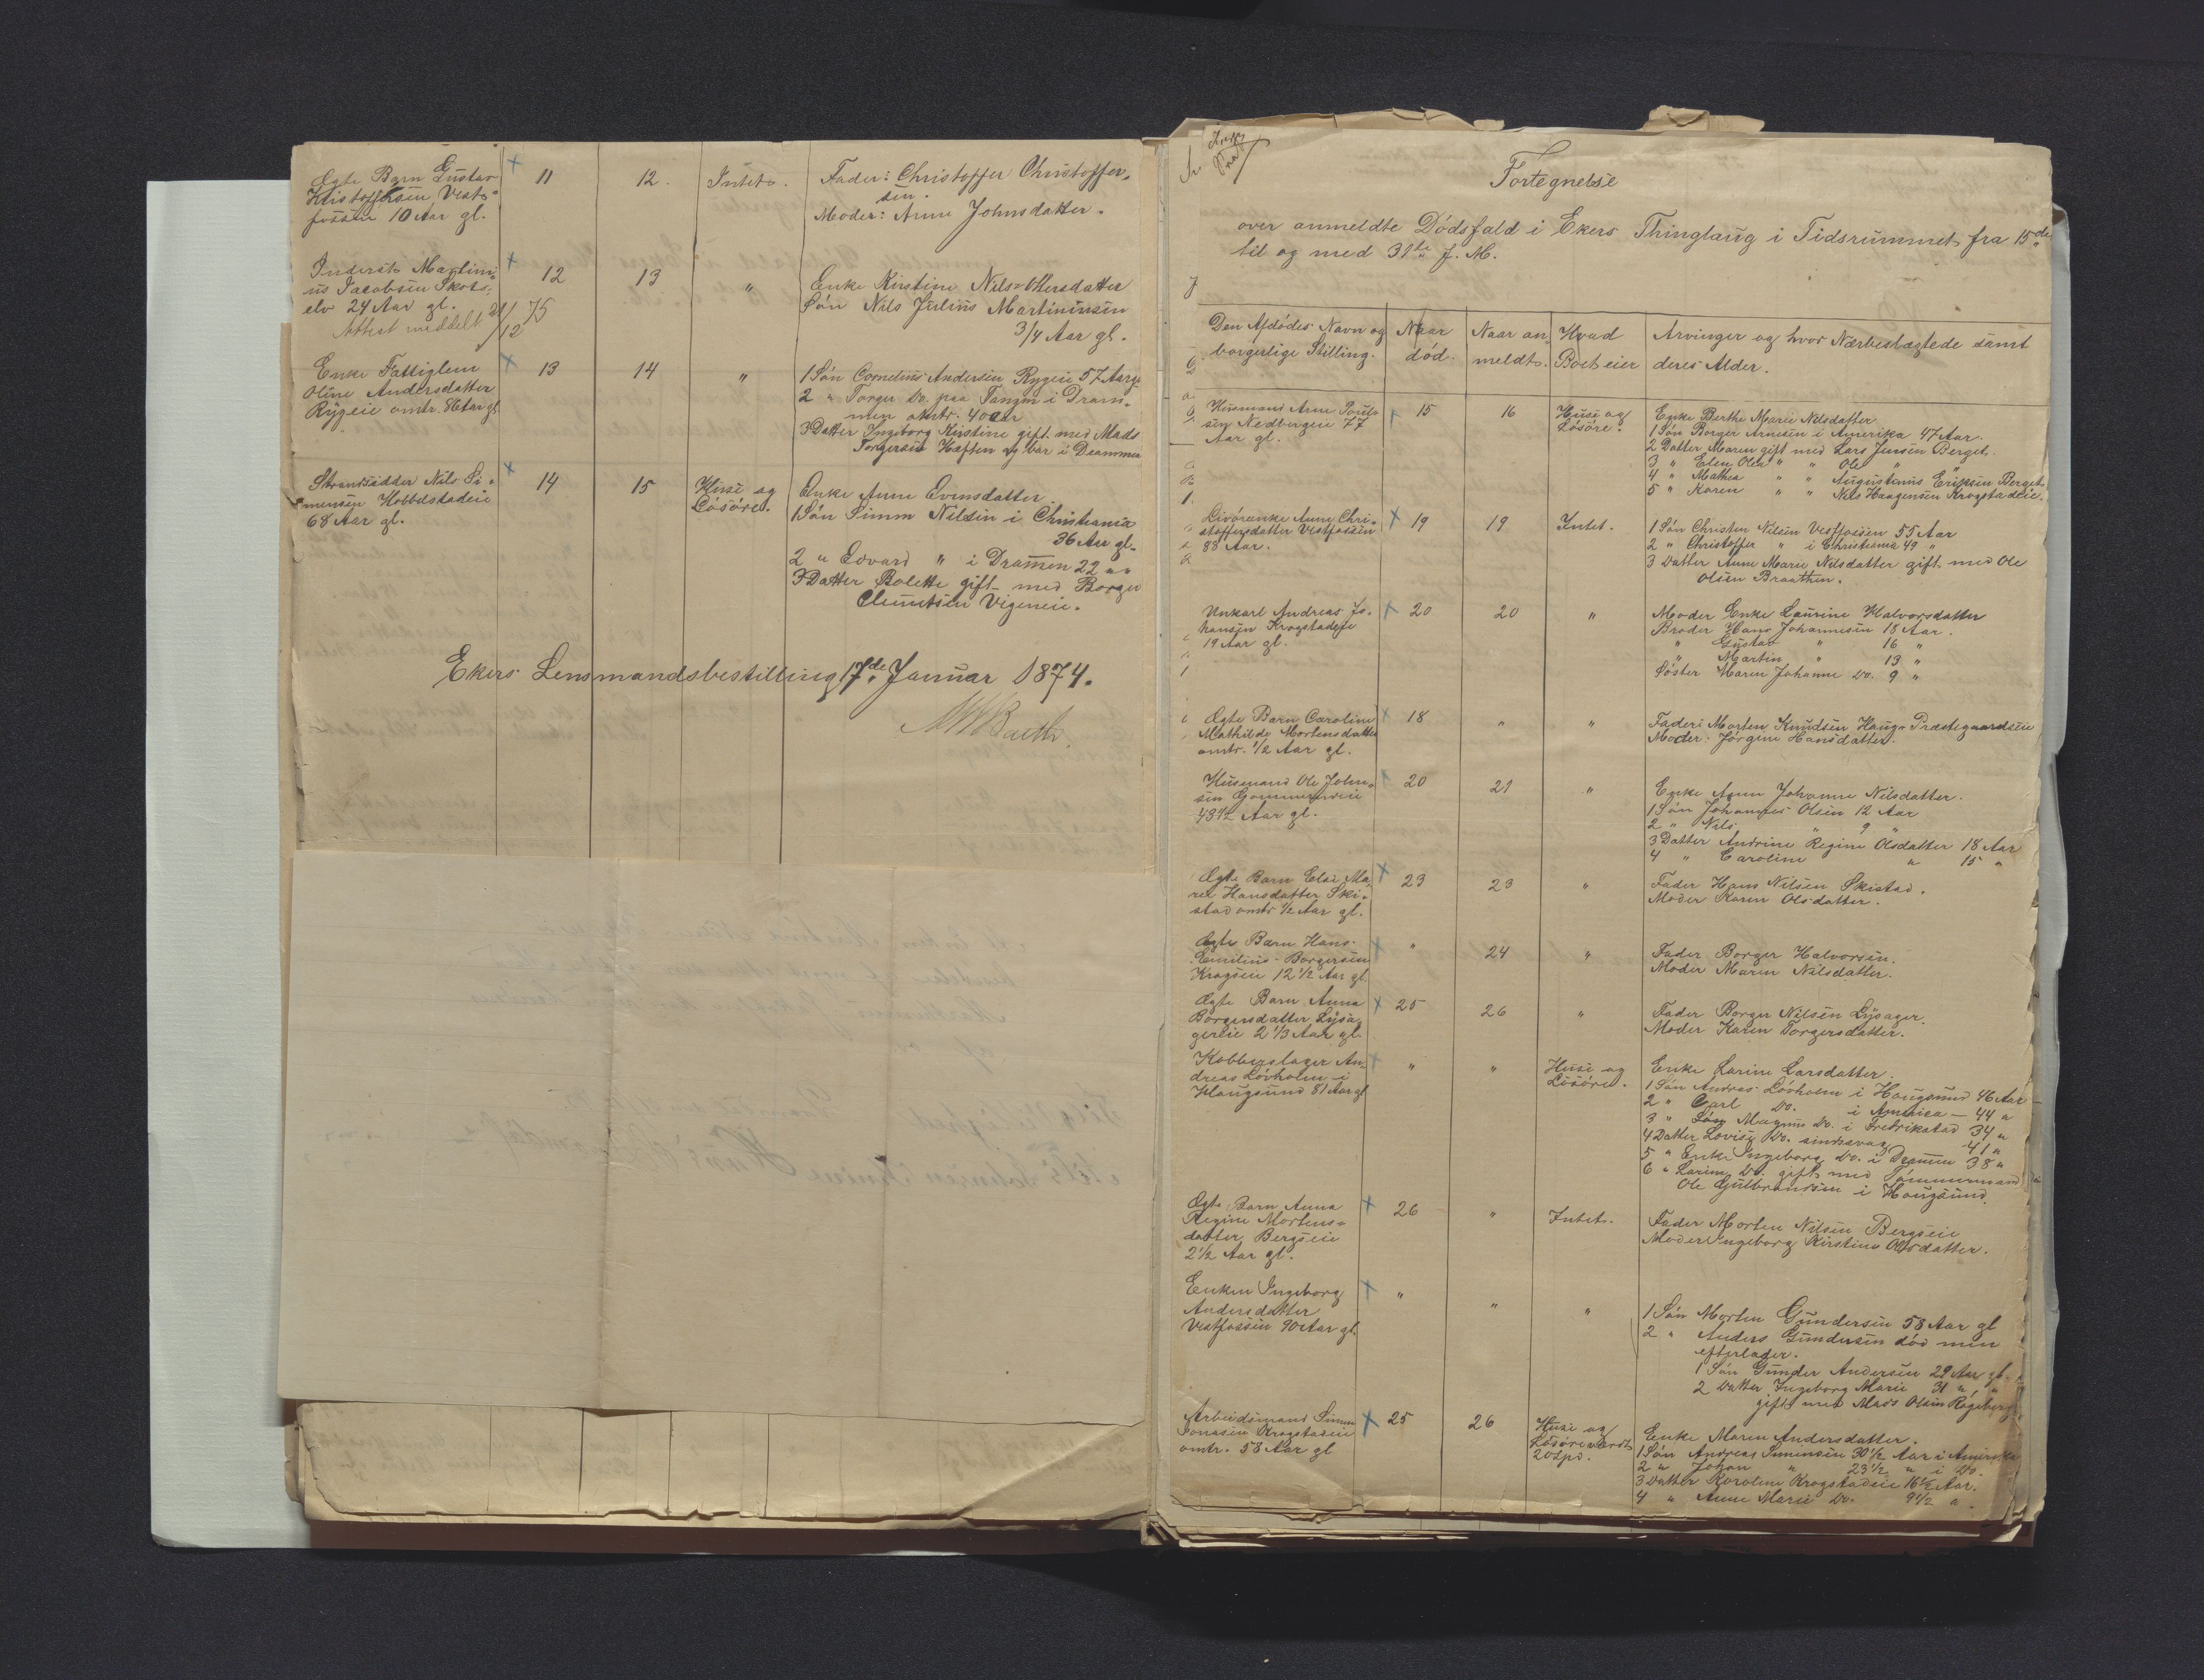 Ægte Barn Gustav
Kristoffersen Vest-
fossen 10 Aar gl.
11
12.
Intet.
Fader: Christoffer Christoffer-
sen.
Moder: Anne Johnsdatter.
Inderst Martini-
us Jacobsen Skots-
elv 24 Aar gl.
Attest meddelt 21/12 75
12
13
"
Enke Kirstine Nils=Ollersdatter
Søn Nils Julius Martiniusen
3/4 Aar gl.
Enke Fattiglem
Oline Andersdatter
Rygeie omtr. 86 Aar gl.
13
14
"
1 Søn Cornelius Andersen Rygeie 57 Aar gl.
2 " Torger Do. paa Tangen i Dram-
men omtr. 40 Aar
3 Datter Ingeborg Kirstine gift med Mads
Torgersen Haften og bor i Drammen
Strandsidder Nils Si-
mensen Hobbelstadeie
68 Aar gl.
14
15
Huse og
Løsøre.
Enke Anne Evensdatter
1 Søn Simen Nilsen i Christiania
36 Aar gl.
2 " Edvard " i Drammen 22 " "
3 Datter Bolette gift med Borger
Clemetsen Vigeneie.
Ekers Lensmandsbestilling 17de Januar 1874.
Fortegnelse
over anmeldte Dødsfald i Ekers Thinglaug i Tidsrummet fra 15de
til og med 31te f. M.
Den Afdødes Navn og
borgerlige Stilling.
Naar
død.
Naar an-
meldt.
Hvad
Boet eier
Arvinger og hvor Nærbeslægtede samt
deres Alder.
Husmand Arne Pouls-
sen Nedbergeie 77
Aar gl.
15
16
Huse og
Løsøre.
Enke Berthe Marie Nilsdatter
1 Søn Borger Arnesen i Amerika 47 Aar.
2 Datter Maren gift med Lars Jensen Berget.
3 " Elen Olea " " Ole " "
4 " Mathea " " Augustinus Eriksen Berget.
5 " Karen " " Nils Haagensen Krogstadeie.
Livørenke Anne Chri-
stoffersdatter Vestfossen
88 Aar.
19
19
Intet.
1 Søn Christen Nilsen Vestfossen 55 Aar
2 " Christoffer " i Christiania 49 "
3 Datter Anne Marie Nilsdatter gift med Ole
Olsen Braathen.
Unkarl Andreas Jo-
hansen Krogstadeie
19 Aar gl.
20
20
"
Moder Enke Laurine Halvorsdatter
Broder Hans Johannesen 18 Aar.
" Gustav " 16 "
" Martin " 13 "
Søster Maren Johanne Do. 9 "
Ægte Barn Caroline
Mathilde Mortensdatter
omtr. 1/2 Aar gl.
18
"
"
Fader: Morten Knudsen Haug-Præstegaardseie
Moder: Jørgine Hansdatter.
Husmand Ole John-
sen
43 1/2 Aar gl.
20
21
"
Enke Anne Johanne Nilsdatter.
1 Søn Johannes Olsen 12 Aar
2 " Nils " 9 "
3 Datter Andrine Regine Olsdatter 18 Aar
4 " Caroline " 15 "
Ægte Barn Else Ma-
rie Hansdatter Ski-
stad omtr 1/2 Aar gl.
23
23
"
Fader Hans Nilsen Skistad.
Moder Karen Olsdatter.
Ægte Barn Hans
Emilius Borgersen
Kragseie 12 1/2 Aar gl.
"
24
"
Fader Borger Halvorsen.
Moder Maren Nilsdatter.
Ægte Barn Anna
Borgersdatter Lysa-
gereie 2 1/3 Aar gl.
25
26
"
Fader Borger Nilsen Lysager.
Moder Karen Torgersdatter.
Kobberslager An-
dreas Løvholm i
Haugsund 81 Aar gl
"
"
Huse og
Løsøre.
Enke Karine Larsdatter.
1 Søn Andreas Løvholm i Hougsund 46 Aar
2 " Carl Do. i America - 44 "
3 " Søn Magnus Do. i Fredrikstad 34 "
4 Datter Lovise Do. sindssvag 41 "
5 " Enke Ingeborg Do. i Drammen 38 "
6 " Karine Do. gift med Tømmermand
Ole Gulbrandsen i Hougsund.
Ægte Barn Anna
Regine Mortens-
datter Bergseie
2 1/2 Aar gl.
26
"
Intet.
Fader Morten Nilsen Bergseie
Moder Ingeborg Kirstine Olsdatter.
Enken Ingeborg
Andersdatter
Vestfossen 90 Aar gl.
"
"
"
1 Søn Morten Gundersen 58 Aar gl
2 " Anders Gundersen død men
efterlader.
1 Søn Gunder Andersen 29 Aar gl.
2 Datter Ingeborg Marie 31 " "
gift med Mads Olsen Røgeberg
Arbeidsmand Simen
Jonasen Krogstadeie
omtr. 58 Aar gl
25
26
Huse og
Løsøre værdt
20 Spd.
Enke Maren Andersdatter.
1 Søn Andreas Simensen 30 1/2 Aar i Amerika
2 " Johan " 23 1/2 " i Do.
3 Datter Karoline Krogstadeie 16 1/2 Aar.
4 " Anne Marie Do. 9 1/2 "